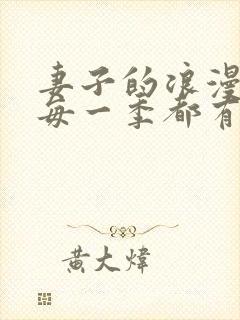 妻子的浪漫
每一季都有
黄大炜